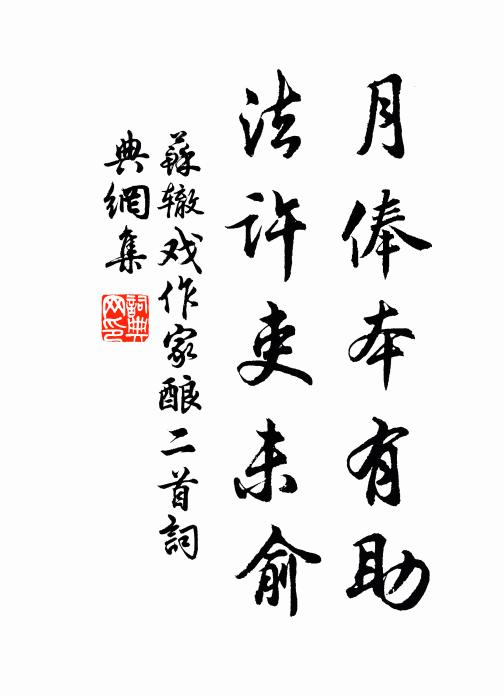 月俸本有助
法许吏未俞
蘇辙戏作家酿二首詞
典網集
詞典
网印